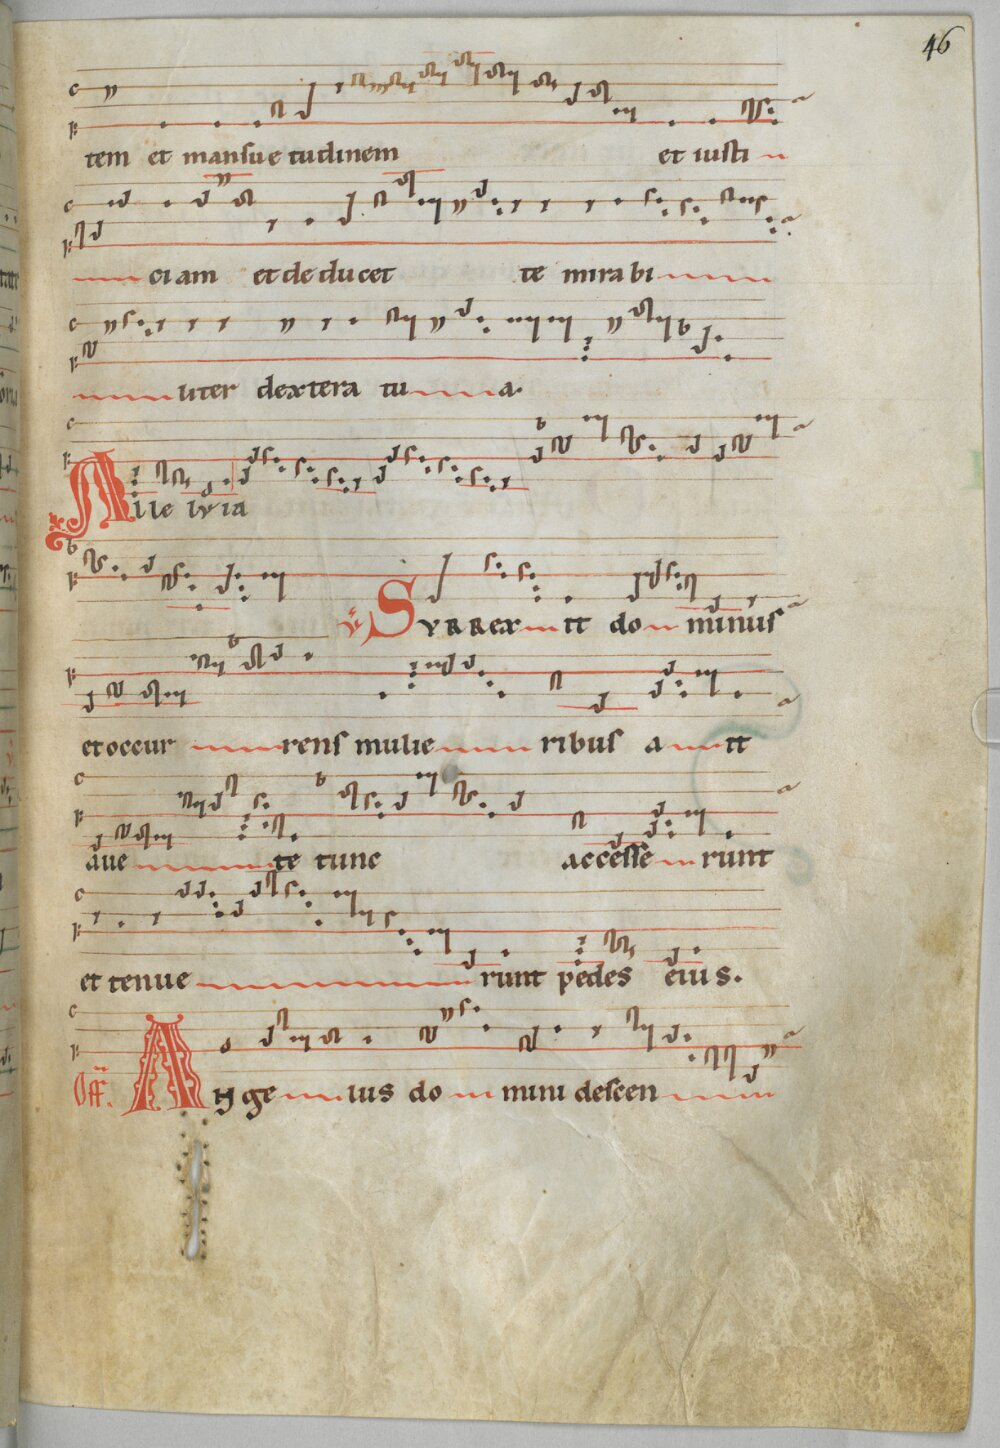 46
tem et mansuetudinem et iusti
ciam et deducet te mirabi
liter dextera tua.
Alleluia
℣ Surrexit dominus
et occurrens mulieribus ait
auete tunc accesserunt
et tenuerunt pedes eius.
Off. Angelus domini descen